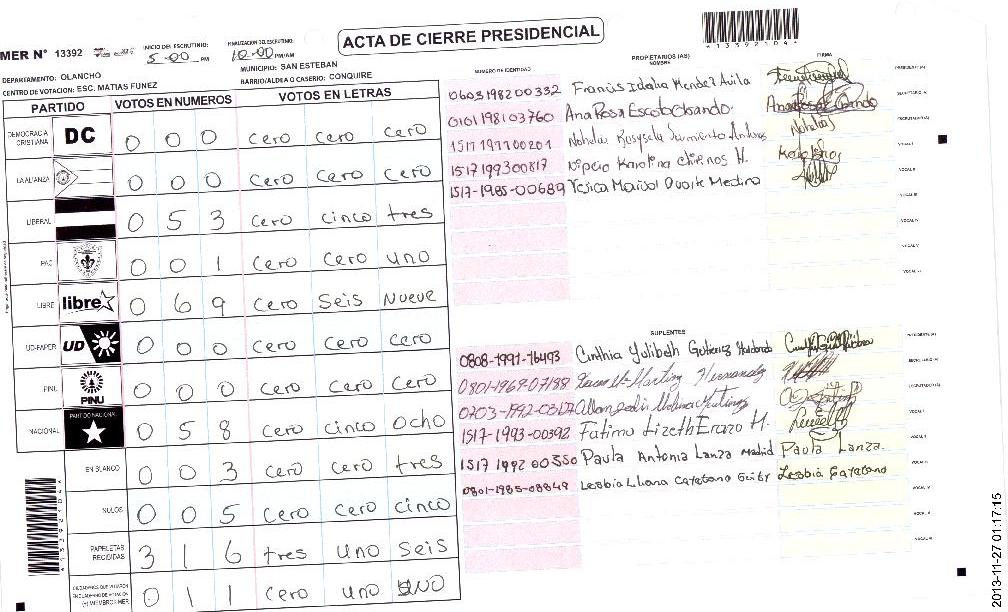 ACTA DE CIERRE PRESIDENCIAL
*13592104*
MER N° 13392
INICIO DEL ESCRUTINIO: 5:00 PM
FINALIZACION DEL ESCRUTINIO: 10:00 PM/AM
DEPARTAMENTO: OLANCHO
MUNICIPIO: SAN ESTEBAN
CENTRO DE VOTACION: ESC. MATIAS FUNEZ
BARRIO/ALDEA O CASERIO: CONQUIRE
PARTIDO VOTOS EN NUMEROS VOTOS EN LETRAS
DEMOCRACIA CRISTIANA DC 0 0 0 cero cero cero
LA ALIANZA 0 0 0 cero cero cero
LIBERAL 0 5 3 cero cinco tres
PAC 0 0 1 cero cero uno
LIBRE libre 0 6 9 cero seis nueve
UD-FAPER UD 0 0 0 cero cero cero
PINU PINU 0 0 0 cero cero cero
NACIONAL PARTIDO NACIONAL 0 5 8 cero cinco ocho
EN BLANCO 0 0 3 cero cero tres
NULOS 0 0 5 cero cero cinco
PAPELETAS RECIBIDAS 3 1 6 tres uno seis
CIUDADANOS QUE VOTARON EN CUADERNO DE VOTACION (+) MIEMBROS MER 0 1 1 cero uno uno
NUMERO DE IDENTIDAD PROPIETARIOS (AS) NOMBRE FIRMA
0603198200332 Francis Idalia Mendez Avila PRESIDENTE (A)
0101198103760 Ana Rosa Escoto Obando SECRETARIO (A)
1517199700201 ESCRUTADOR (A)
1517199300817 Karolina H. VOCAL I
1517-1985-00689 Yesica Marisol Duarte Medina VOCAL II
VOCAL III
VOCAL IV
VOCAL V
VOCAL VI
SUPLENTES
0808-1991-76493 Cinthia Yulibeth Gutierrez PRESIDENTE (A)
0801-1969-07188 Martinez Hernandez SECRETARIO (A)
0703-1992-03127 Molina Martinez ESCRUTADOR (A)
1517-1993-00392 Fatima Lizeth Erazo M. VOCAL I
1517 1992 00350 Paula Antonia Lanza Madrid Paula Lanza. VOCAL II
0801-1985-08849 Lesbia Liliana Cayetano Lesbia Cayetano
2013-11-27 01:17:15